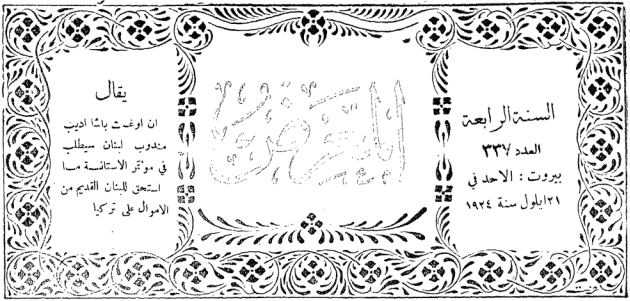 السنة الرابعة
العدد ٣٣٧
بيروت : الاحد في
٢١ ايلول سنة ١٩٢٤
المعرض
يقال
ان اوغست باشا اديب
مندوب لبنان سيطلب
في مؤتمر الاستانة ما
استحق للبنان القديم من
الاموال على تركيا